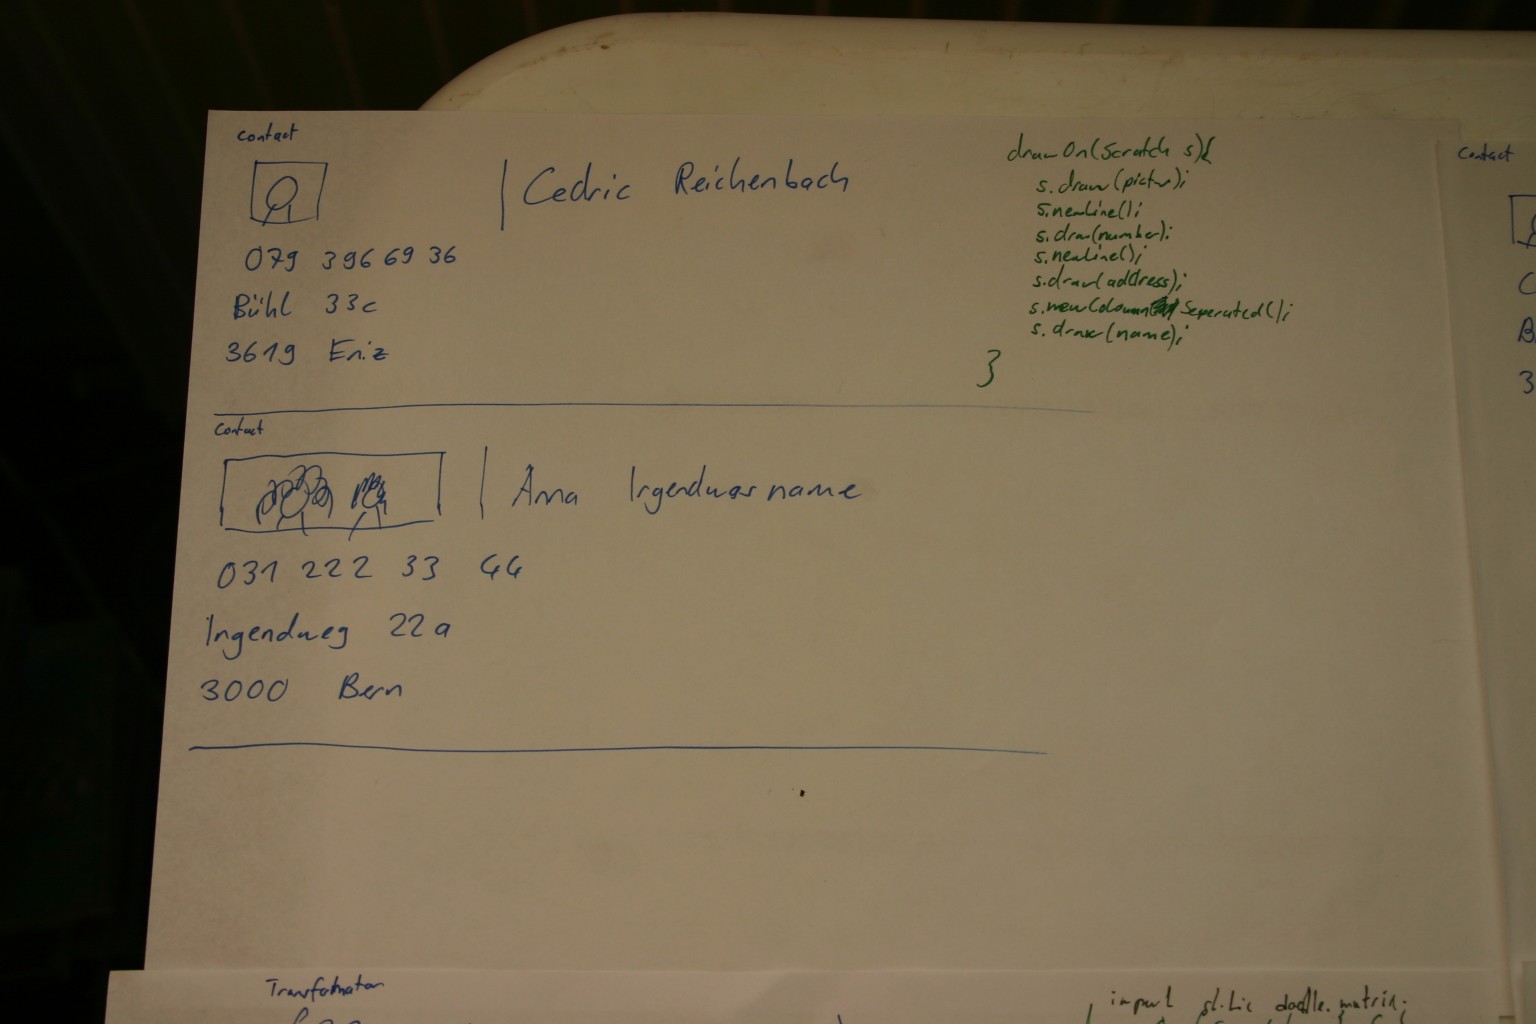 contact
Cedric Reichenbach
079 396 69 36
Bühl 33c
3619 Eriz
drawOn(Scratch s){
s.draw(pictur);
s.newLine();
s.draw(number);
s.newLine();
s.draw(address);
s.newColumn Seperated();
s.draw(name);
}
Contact
Anna Irgendwasname
031 222 33 44
Irgendweg 22a
3000 Bern
Contact
Transformation
import static doodle.matrix.